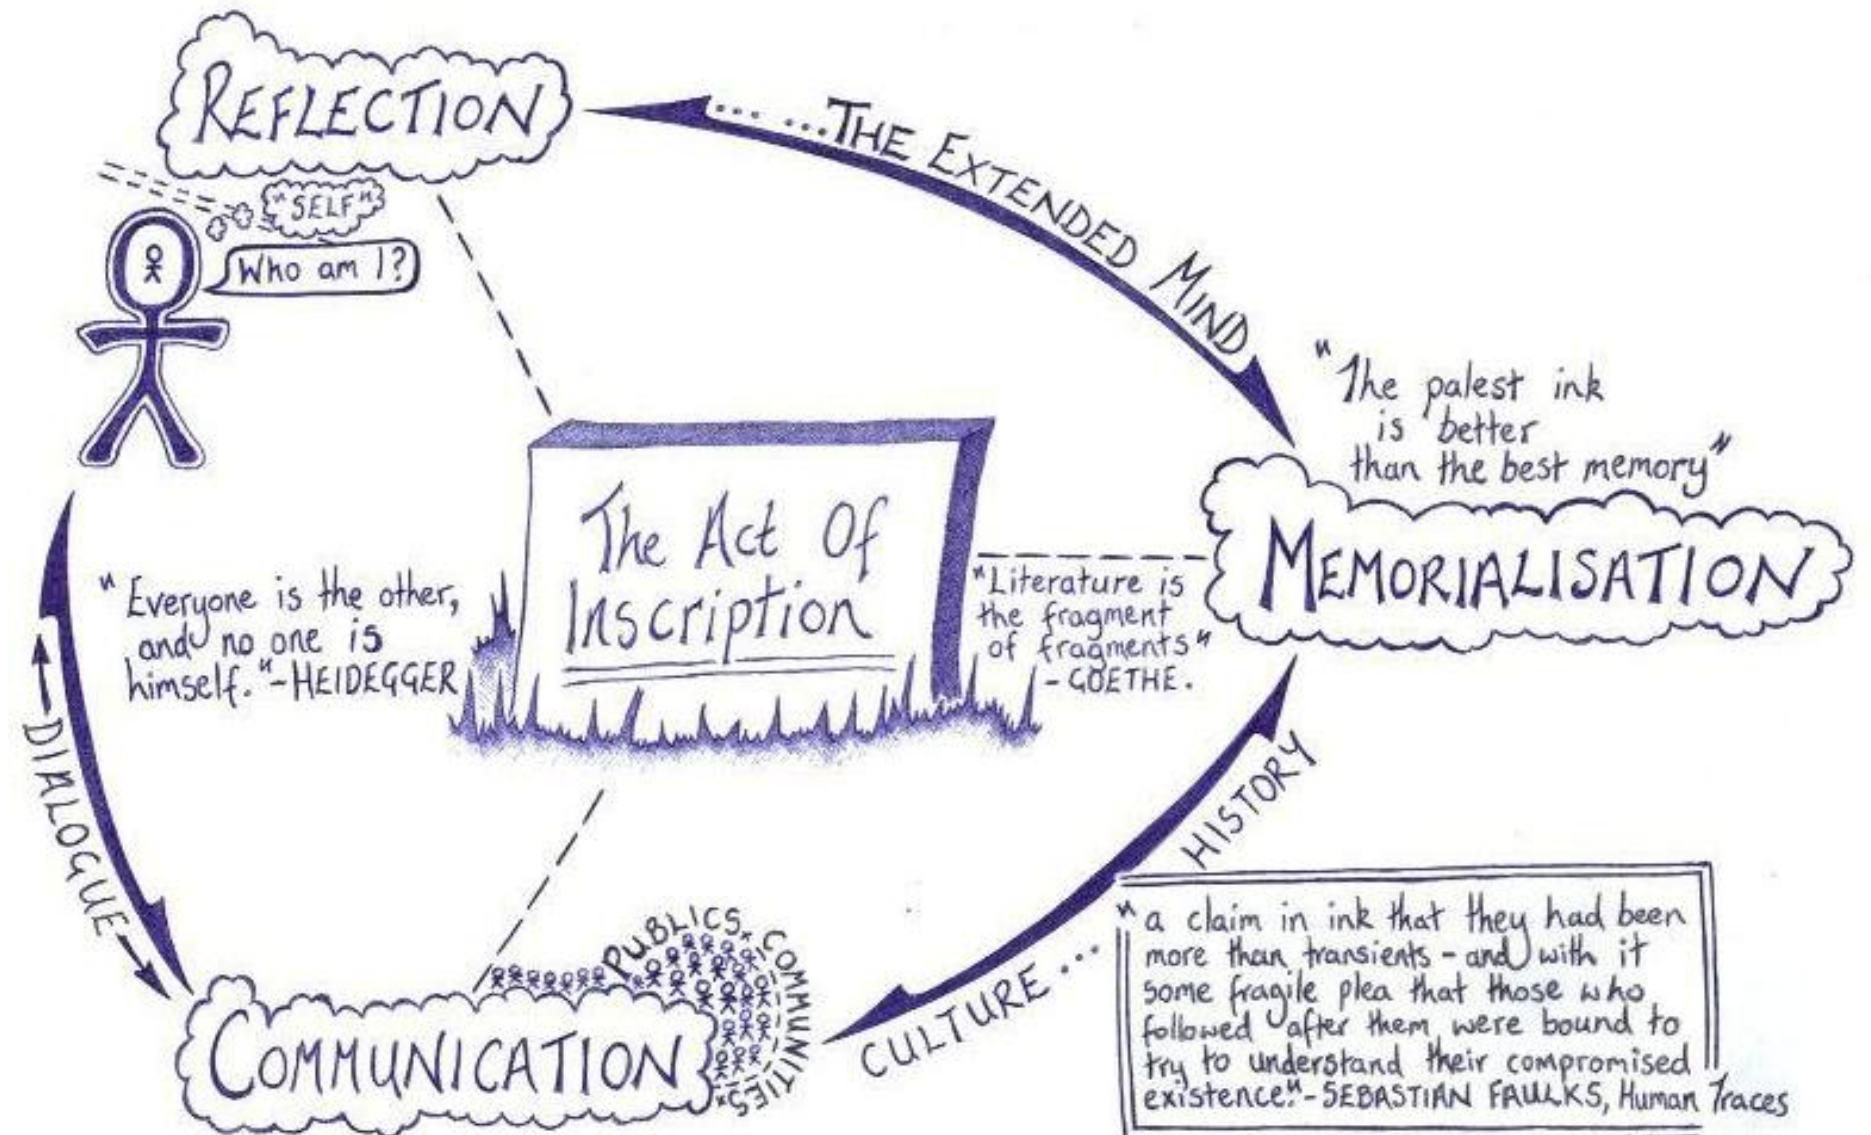 REFLECTION
"SELF"
Who am I?
... ...THE EXTENDED MIND
"The palest ink
is better
than the best memory"
MEMORIALISATION
The Act Of
Inscription
"Literature is
the fragment
of fragments"
-GOETHE.
"Everyone is the other,
and no one is
himself."-HEIDEGGER
DIALOGUE
HISTORY
CULTURE ...
PUBLICS, COMMUNITIES
COMMUNICATION
"a claim in ink that they had been
more than transients - and with it
some fragile plea that those who
followed after them were bound to
try to understand their compromised
existence."-SEBASTIAN FAULKS, Human Traces